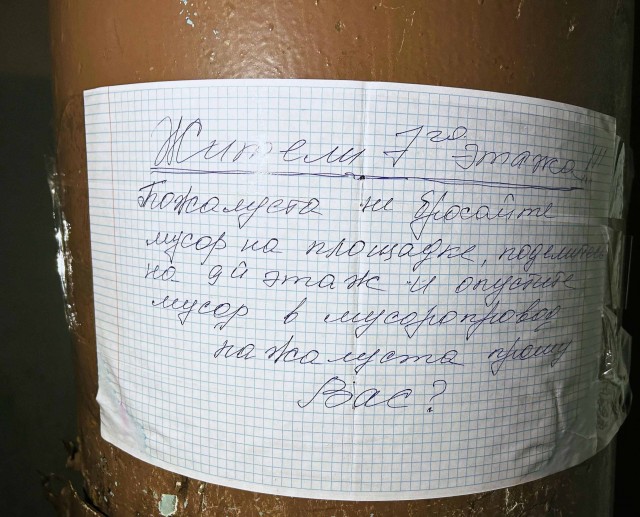 Жители 7го этажа!!!
Пожалуста не бросайте
мусор на площадке,
на этаж и опустите
мусор в мусоропровод
пажалуста прошу
Вас?